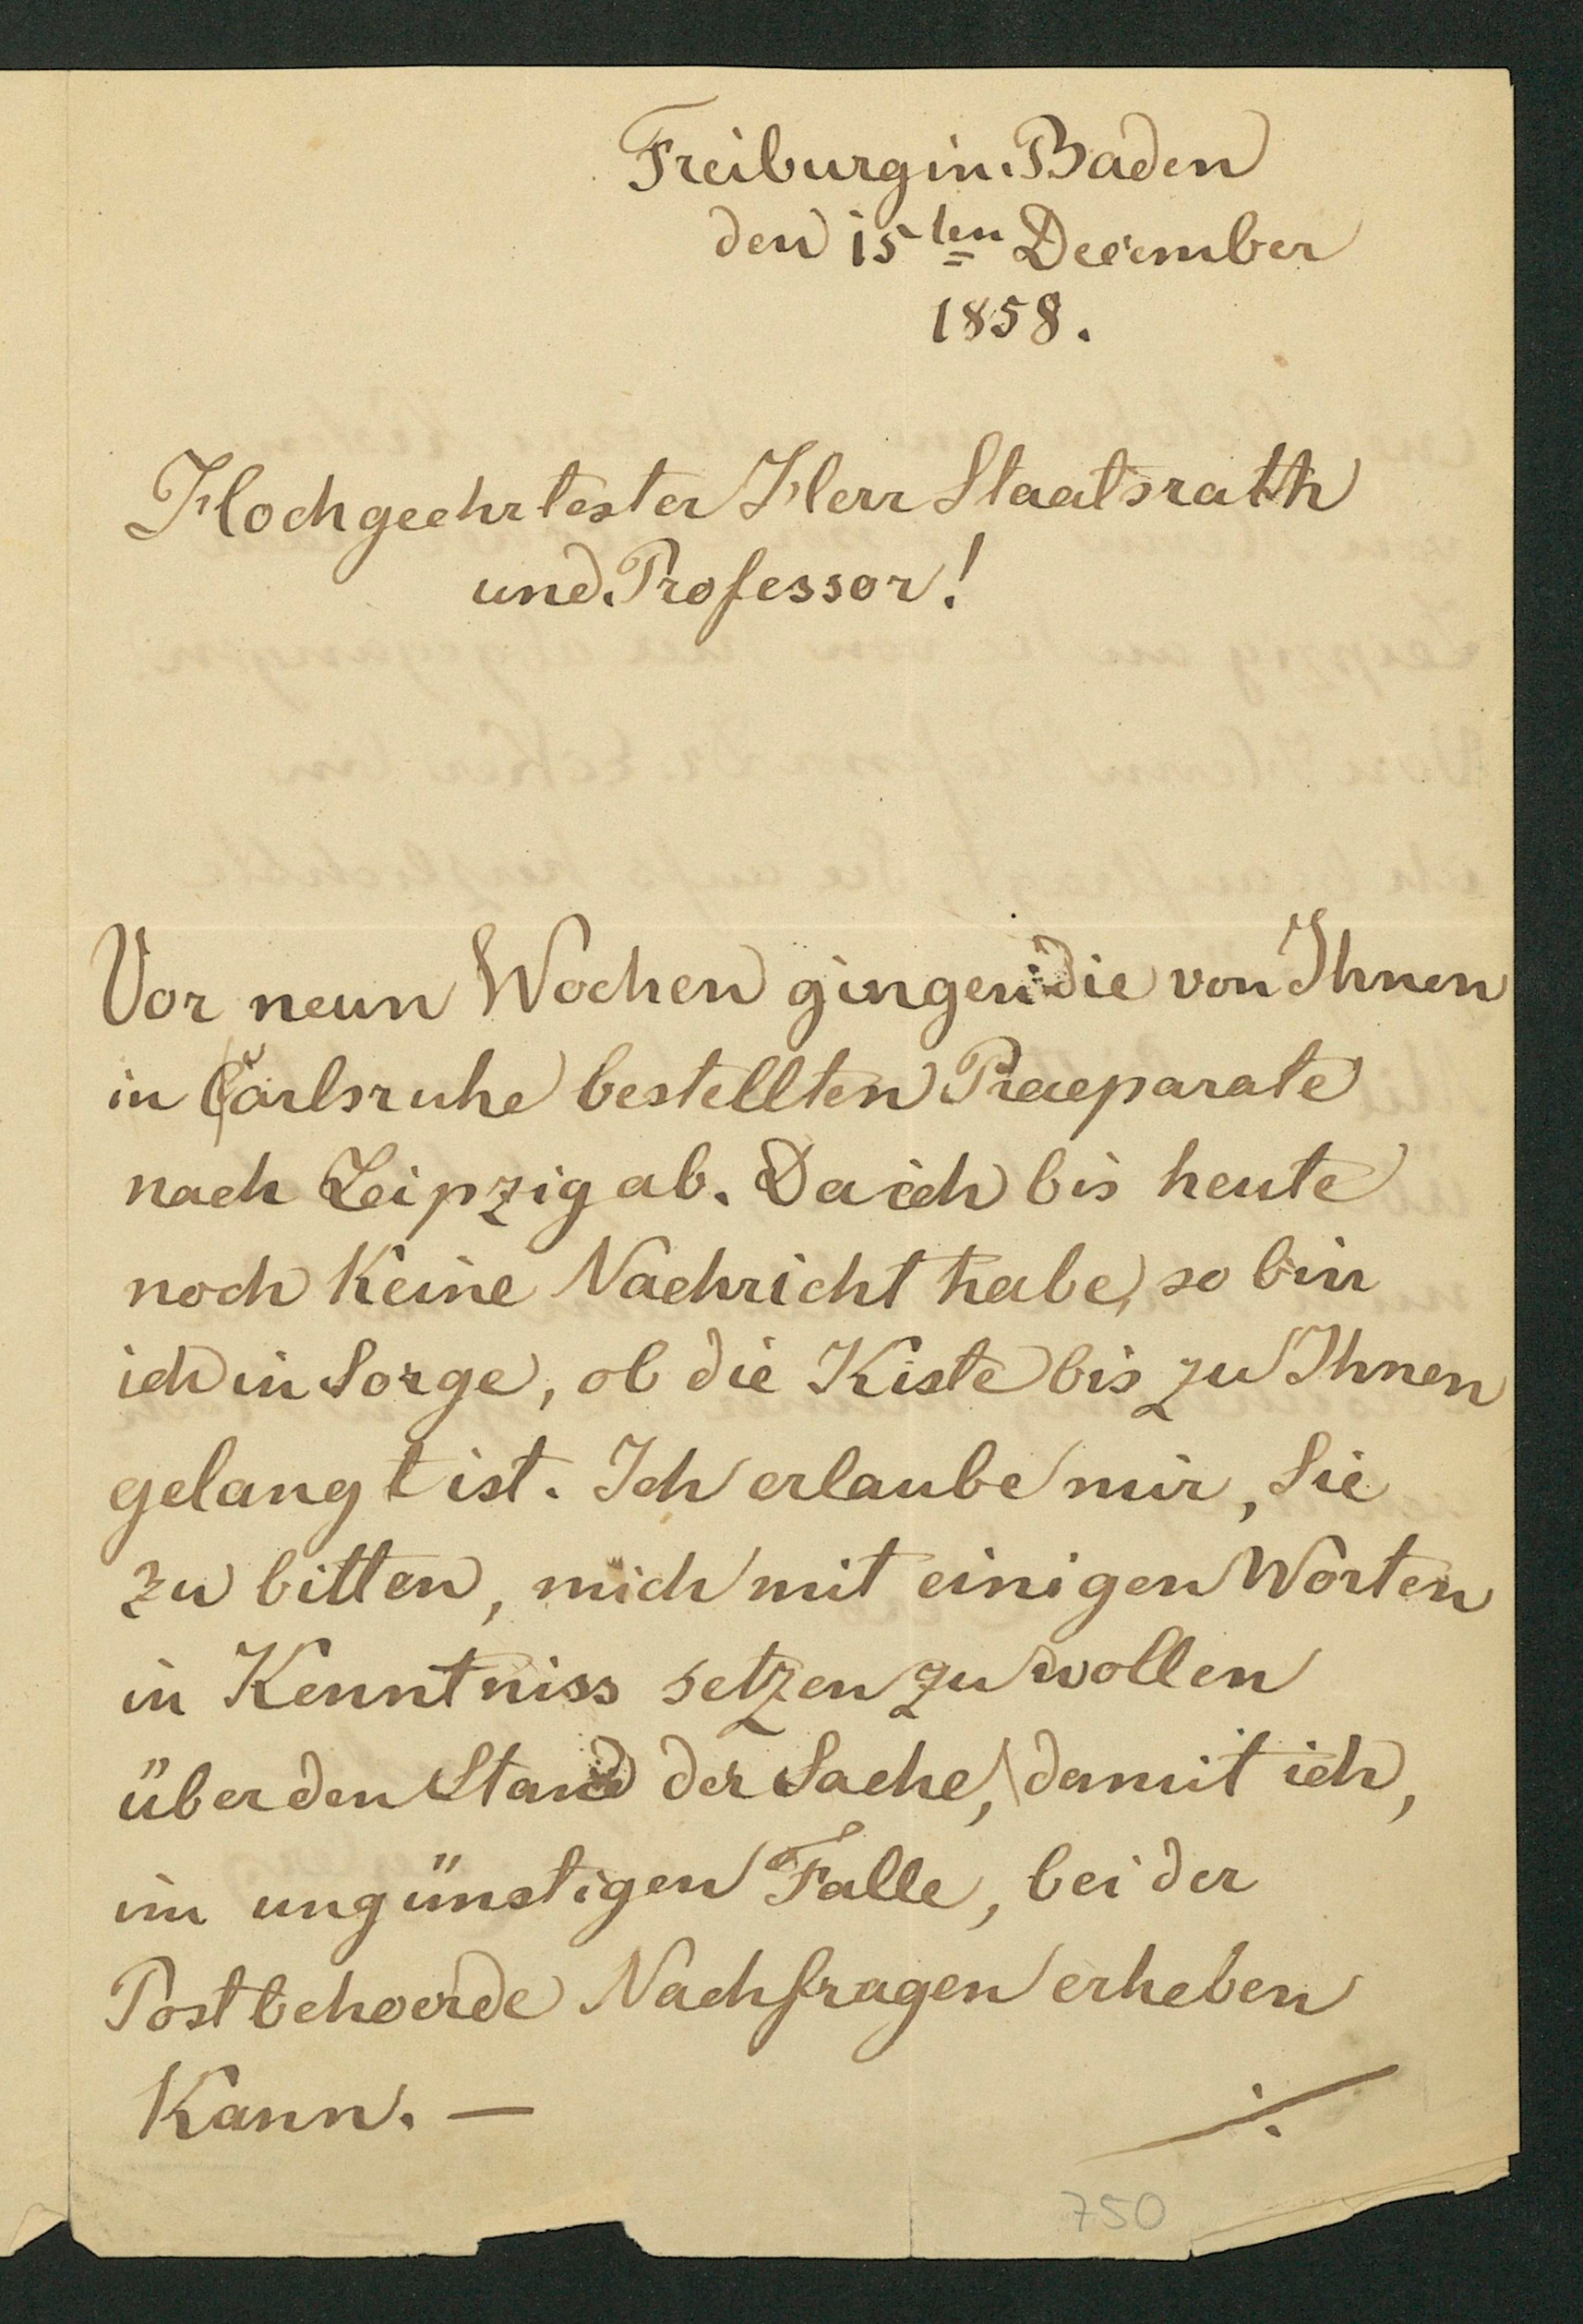 Freiburg in Baden
den 15ten December
1858.
Hochgeehrtester Herr Staatsrath
und Professor!
Vor neun Wochen gingen die von Ihnen
in Carlsruhe bestellten Praeparate
nach Leipzig ab. Da ich bis heute
noch Keine Nachricht habe, so bin
ich in Sorge, ob die Kiste bis zu Ihnen
gelangt ist. Ich erlaube mir, Sie
zu bitten, mich mit einigen Worten
in Kenntniss setzen zu wollen
über den Stand der Sache, damit ich,
im ungünstigen Falle, bei der
Postbehoerde Nachfragen erheben
Kann. —
./.
750